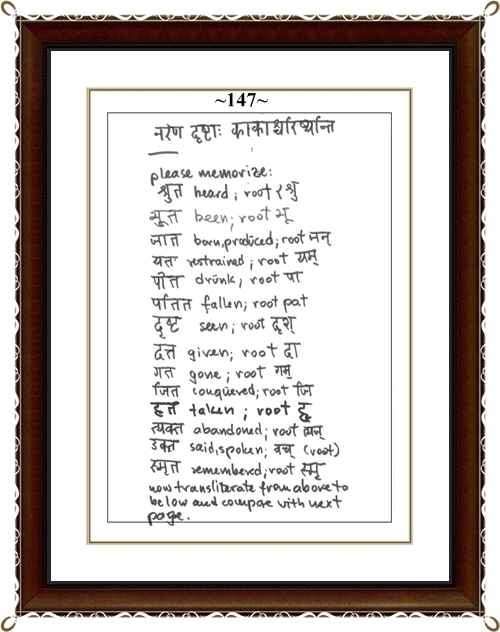 ~147~
नरेण दृष्टाः काकाश्चरिष्यन्ति
please memorize:
श्रुत heard; root श्रु
भूत been; root भू
जात born, produced; root जन्
यत restrained; root यम्
पीत drunk; root पा
पतित fallen; root pat
दृष्ट seen; root दृश्
दत्त given; root दा
गत gone; root गम्
जित conquered; root जि
हृत taken; root हृ
त्यक्त abandoned; root त्यज्
उक्त said, spoken; वच् (root)
स्मृत remembered; root स्मृ
now transliterate from above to
below and compare with next
page.